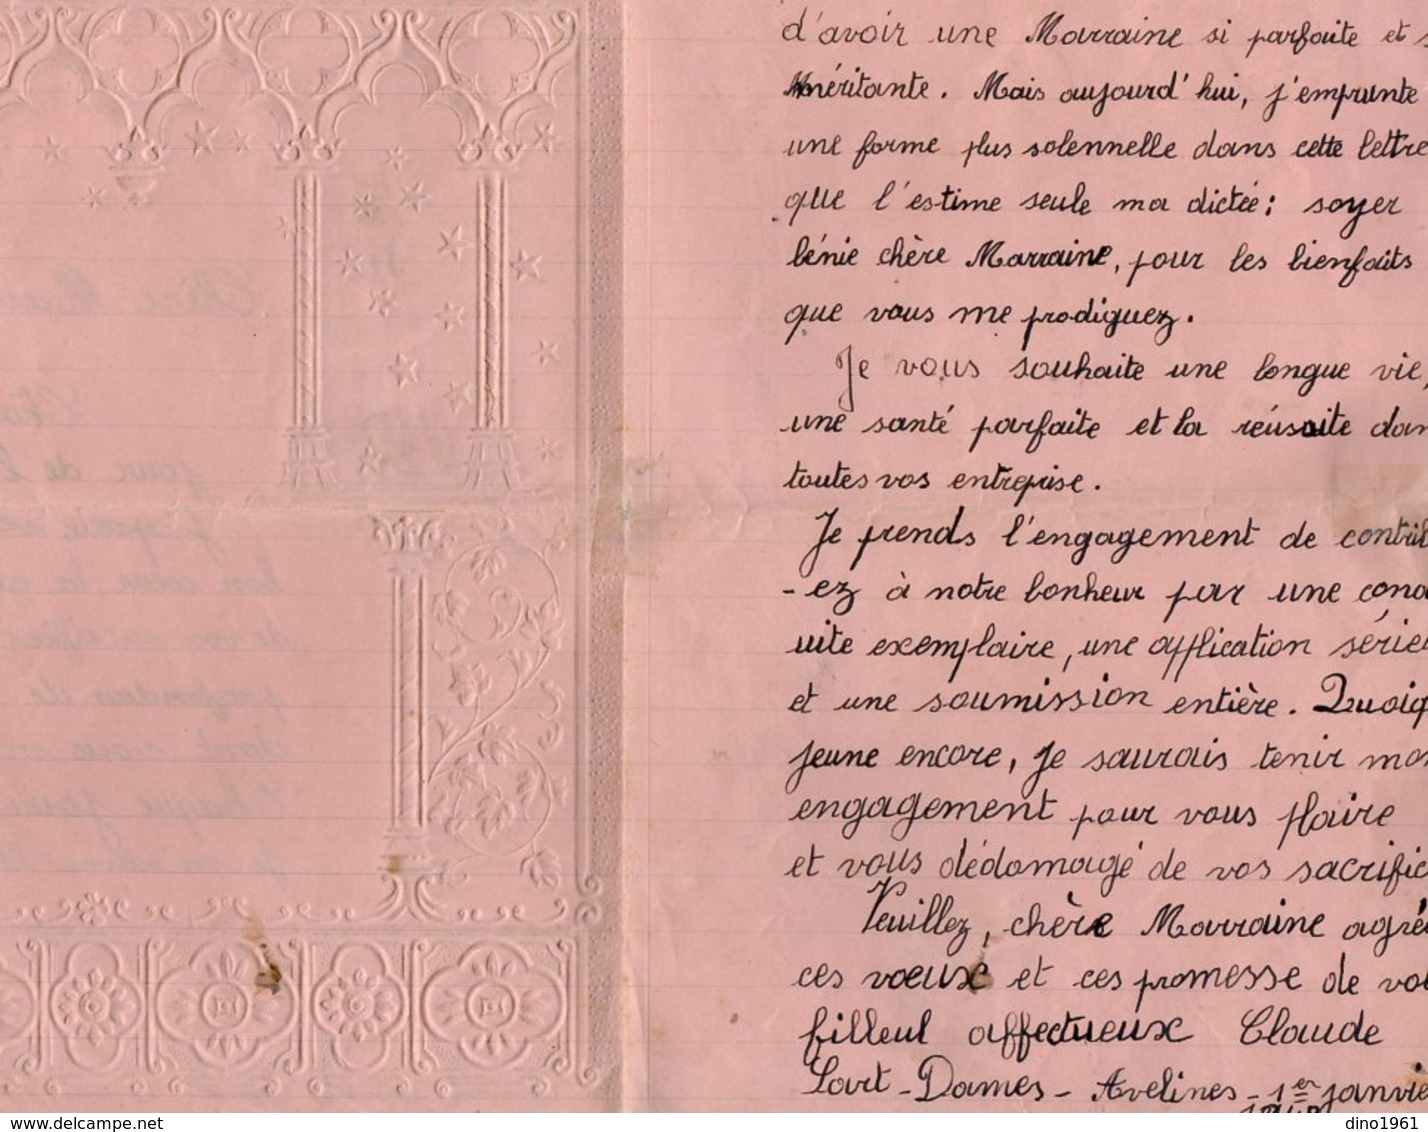 d'avoir une Marraine si parfaite et s
méritante. Mais aujourd'hui, j'emprunte
une forme plus solennelle dans cette lettre
que l'estime seule ma dictée: soyer
bénie chère Marraine, pour les bienfaits
que vous me prodiguez.
Je vous souhaite une longue vie,
une santé parfaite et la réusuite dan
toutes vos entreprise.
Je prends l'engagement de contrib
-ez à notre bonheur par une cond
uite exemplaire, une application sérieu
et une soumission entière. Quoiq
jeune encore, je saurais tenir mon
engagement pour vous plaire
et vous dédomagé de vos sacrific
Veuillez, chère Marraine agrée
ces voeux et ces promesse de vot
filleul affectueux Claude
Sart-Dames-Avelines-1er janvie
delcampe.net
dino1961